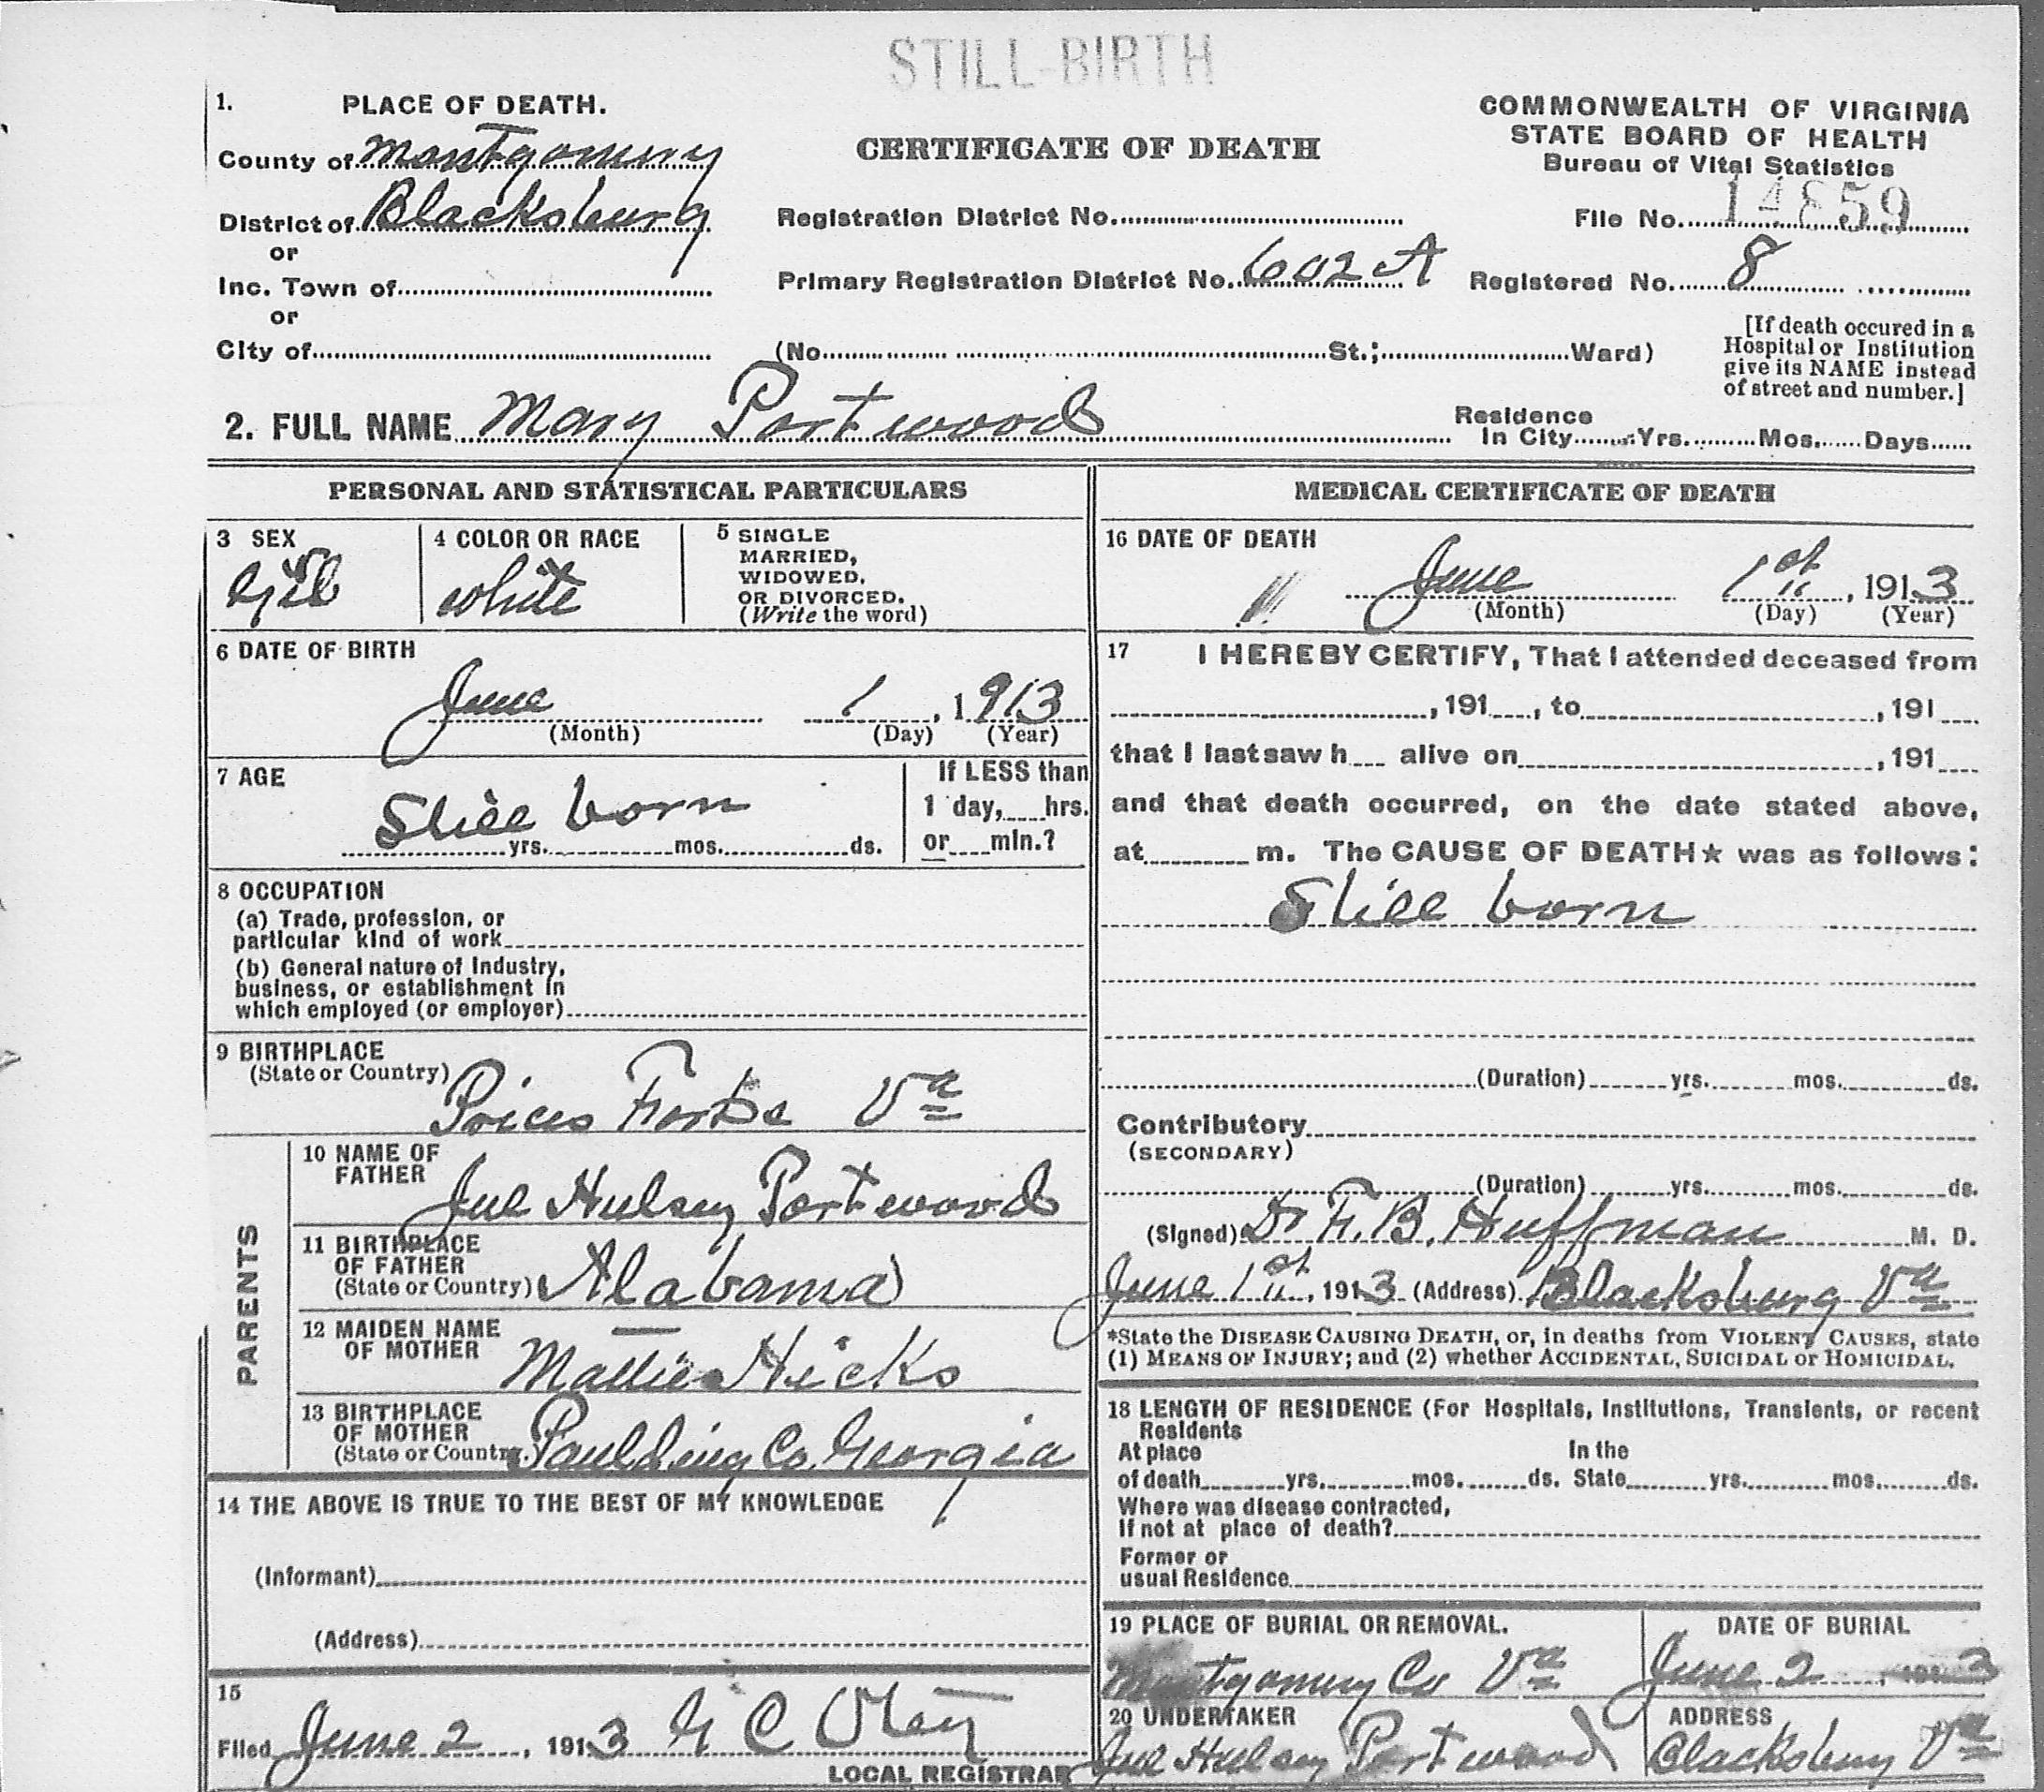 STILL-BIRTH
1. PLACE OF DEATH.
County of Montgomery
District of Blacksburg
or
Inc. Town of
or
City of
CERTIFICATE OF DEATH
COMMONWEALTH OF VIRGINIA
STATE BOARD OF HEALTH
Bureau of Vital Statistics
Registration District No.
File No. 14859
Primary Registration District No. 602 A
Registered No. 8
(No. St.; Ward)
[If death occured in a
Hospital or Institution
give its NAME instead
of street and number.]
2. FULL NAME Mary Portwood
Residence
In City Yrs. Mos. Days
PERSONAL AND STATISTICAL PARTICULARS
3 SEX
4 COLOR OR RACE
white
5 SINGLE
MARRIED,
WIDOWED,
OR DIVORCED.
(Write the word)
6 DATE OF BIRTH
June 1, 1913
(Month) (Day) (Year)
7 AGE
Still born
yrs. mos. ds.
If LESS than
1 day, hrs.
or min.?
8 OCCUPATION
(a) Trade, profession, or
particular kind of work
(b) General nature of Industry,
business, or establishment in
which employed (or employer)
9 BIRTHPLACE
(State or Country)
Prices Forks Va
PARENTS
10 NAME OF
FATHER
Jul Hulsey Portwood
11 BIRTHPLACE
OF FATHER
(State or Country) Alabama
12 MAIDEN NAME
OF MOTHER
Mattie Hicks
13 BIRTHPLACE
OF MOTHER
(State or Country.) Paulding Co. Georgia
14 THE ABOVE IS TRUE TO THE BEST OF MY KNOWLEDGE
(Informant)
(Address)
15
Filed June 2, 1913 C Olery
LOCAL REGISTRAR
MEDICAL CERTIFICATE OF DEATH
16 DATE OF DEATH
June 1st, 1913
(Month) (Day) (Year)
17 I HEREBY CERTIFY, That I attended deceased from
, 191 , to , 191
that I last saw h alive on , 191
and that death occurred, on the date stated above,
at m. The CAUSE OF DEATH★ was as follows:
Still born
(Duration) yrs. mos. ds.
Contributory
(SECONDARY)
(Duration) yrs. mos. ds.
(Signed) Dr F. B. Huffman M. D.
June 1st, 1913 (Address) Blacksburg Va
*State the DISEASE CAUSING DEATH, or, in deaths from VIOLENT CAUSES, state
(1) MEANS OF INJURY; and (2) whether ACCIDENTAL, SUICIDAL or HOMICIDAL.
18 LENGTH OF RESIDENCE (For Hospitals, Institutions, Transients, or recent
Residents
At place In the
of death yrs. mos. ds. State yrs. mos. ds.
Where was disease contracted,
If not at place of death?
Former or
usual Residence
19 PLACE OF BURIAL OR REMOVAL.
Montgomery Co Va
DATE OF BURIAL
June 2, 1913
20 UNDERTAKER
Jul Hulsey Portwood
ADDRESS
Blacksburg Va